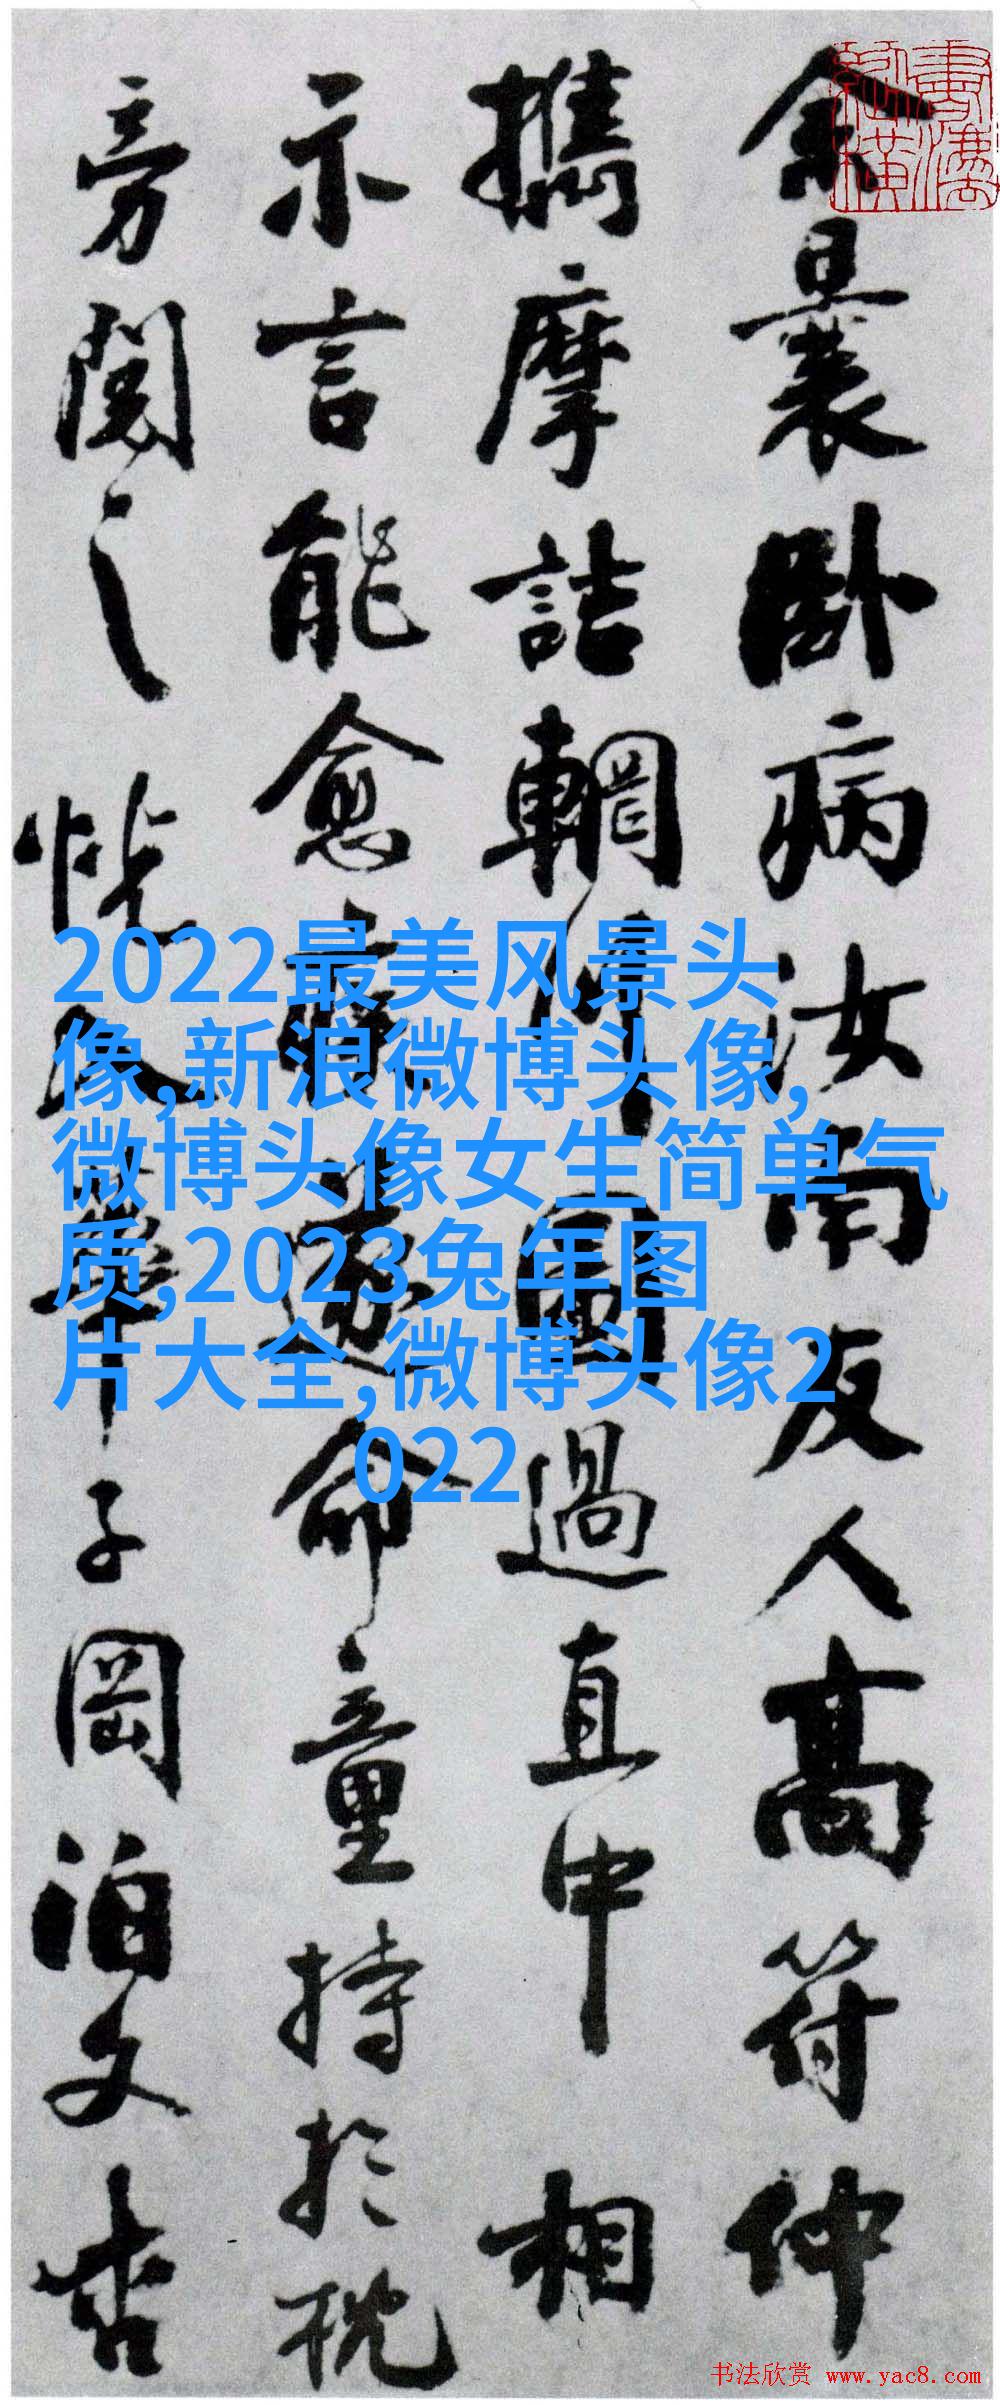 余曩卧病汝南友人高符仲
攜摩詰輞川圖過直中相
示言能愈疾遂命童持於枕
旁閱之恍入華子岡泊文杏
2022最美风景头
像,新浪微博头像,
微博头像女生简单气
质,2023兔年图
片大全,微博头像2
022
书法欣赏 www.yac8.com